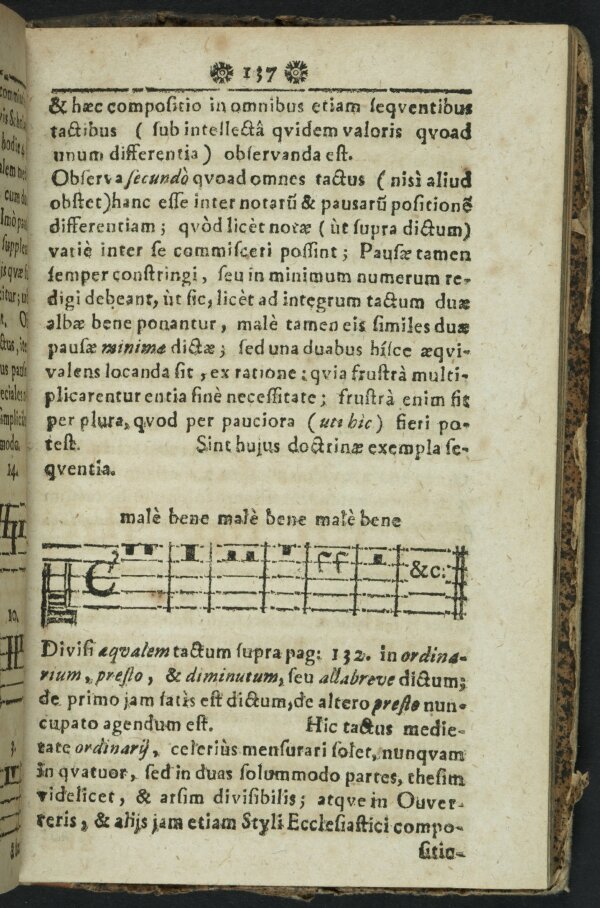 137
& hæc compositio in omnibus etiam seqventibus
tactibus ( sub intellectâ qvidem valoris qvoad
unum differentia ) observanda est.
Observa secundò qvoad omnes tactus ( nisì aliud
obstet)hanc esse inter notarū & pausarū positionē
differentiam ; qvòd licèt notæ ( ùt supra dictum)
variè inter se commisceri possint ; Pausæ tamen
semper constringi , seu in minimum numerum re-
digi debeant, ùt sic, licèt ad integrum tactum duæ
albæ bene ponantur , malè tamen eis similes duæ
pausæ minimæ dictæ ; sed una duabus hísce æqvi-
valens locanda sit , ex ratione : qvia frustrà multi-
plicarentur entia sinè necessitate ; frustrà enim fit
per plura, qvod per pauciora ( uti hic ) fieri po-
test. Sint hujus doctrinæ exempla se-
qventia.
malè bene malè bene malè bene
&c:
Divisi æqvalem tactum supra pag: 132. in ordina-
rium, presto , & diminutum, seu allabreve dictum;
de primo jam satis est dictum, de altero presto nun-
cupato agendum est. Hic tactus medie-
tate ordinarij, celeriùs mensurari solet, nunqvam
in qvatuor, sed in duas solummodo partes, thesim
videlicet , & arsim divisibilis ; atqve in Ouver-
teris, & alijs jam etiam Styli Ecclesiastici compo-
sitio-
14.
10.
3.